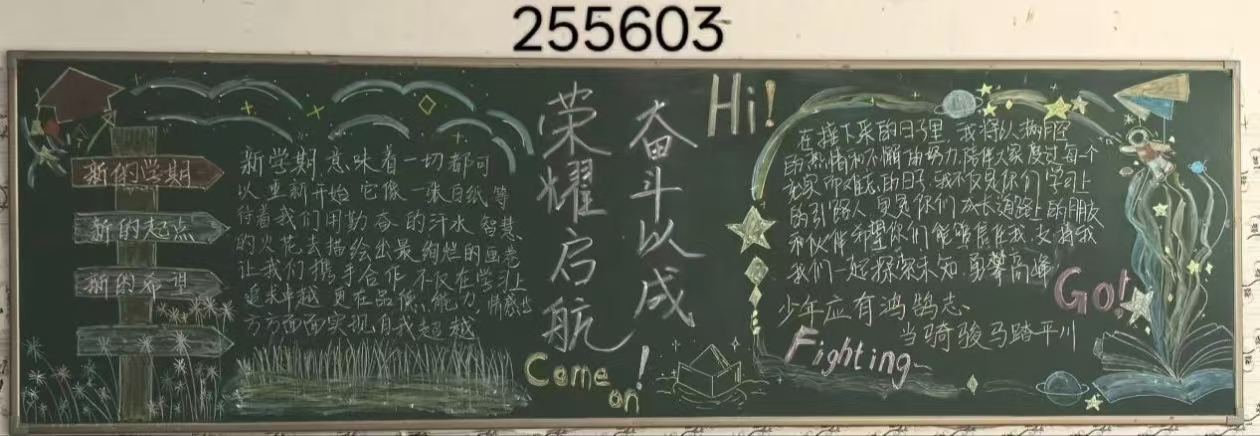 255603
新的学期
新的起点
新的希望
新学期,意味着一切都可
以重新开始,它像一张白纸,等
待着我们用勤奋的汗水、智慧
的火花去描绘出最绚烂的画卷
让我们携手合作,不仅在学习上
追求卓越,更在品德、能力、情感上
方方面面实现自我超越
荣耀启航
奋斗以成
Come on!
Hi!
在接下来的日子里,我将以满腔
的热情和不懈的努力,陪伴大家度过每一个
充实而难忘的日子,我不仅是你们学习上
的引路人,更是你们成长道路上的朋友
和伙伴希望你们能够信任我、支持我
我们一起探索未知,勇攀高峰
Go!
少年应有鸿鹄志
当骑骏马踏平川
Fighting